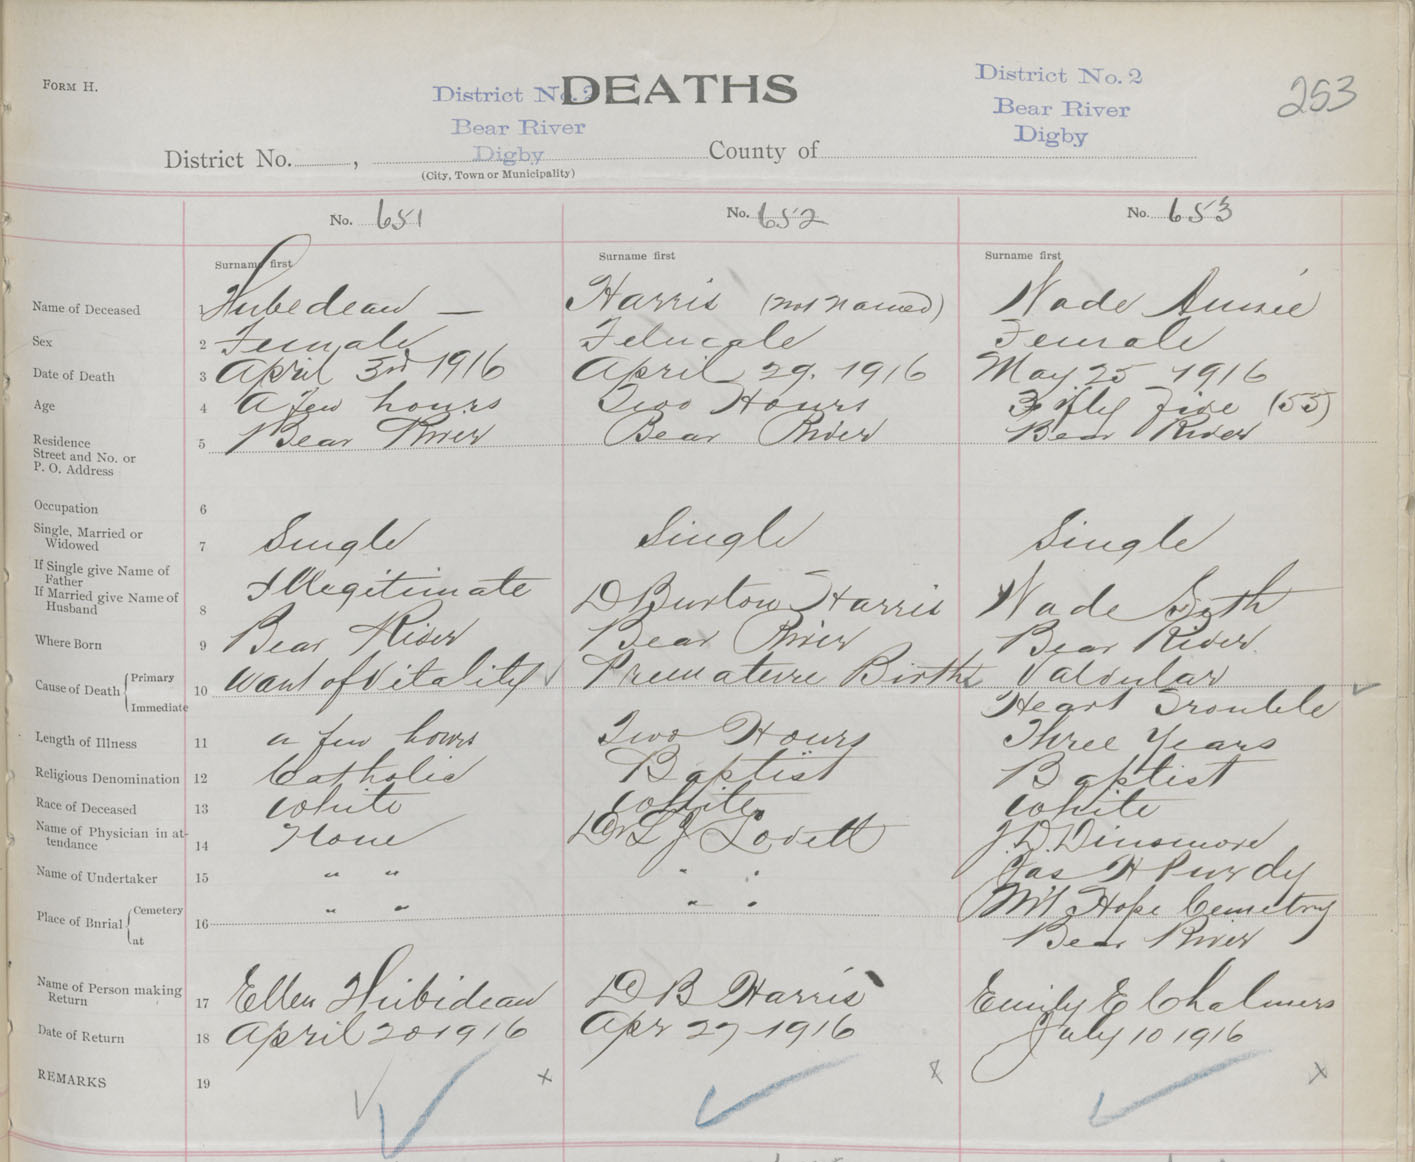 FORM H.
DEATHS
253
District No. 2
Bear River
Digby
District No. 2
Bear River
Digby
District No. , County of
(City, Town or Municipality)
No. 651 No. 652 No. 653
Surname first Surname first Surname first
Name of Deceased 1 Hubedeau — Harris (not named) Wade Annie
Sex 2 Female Female Female
Date of Death 3 April 3rd 1916 April 29. 1916 May 25 1916
Age 4 A few hours Two Hours Fifty Five (55)
Residence
Street and No. or
P. O. Address 5 Bear River Bear River Bear River
Occupation 6
Single, Married or
Widowed 7 Single Single Single
If Single give Name of
Father
If Married give Name of
Husband 8 Illegitimate D Burton Harris Wade Seth
Where Born 9 Bear River Bear River Bear River
Cause of Death Primary
Immediate 10 Want of Vitality Premature Birth Valvular
Heart Trouble
Length of Illness 11 a few hours Two Hours Three Years
Religious Denomination 12 Catholic Baptist Baptist
Race of Deceased 13 White White White
Name of Physician in at-
tendance 14 None Dr L J Lovett J. D. Dinsmore
Name of Undertaker 15 " " " " Jas H Purdy
Place of Burial Cemetery
at 16 " " " " Mt Hope Cemetry
Bear River
Name of Person making
Return 17 Ellen Hubideau D B Harris Emily E Chalmers
Date of Return 18 April 20 1916 Apr 27 - 1916 July 10 1916
REMARKS 19 x x x